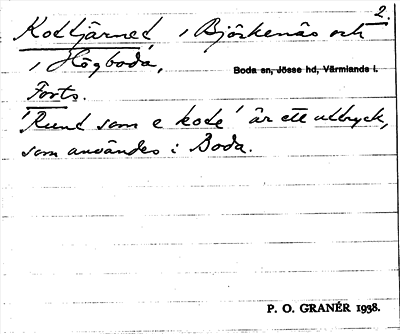 2.
Kottjärnet, i Björkenäs och
i Högboda,
Boda sn, Jösse hd, Värmlands l.
Forts.
'Rund som e kode' är ett uttryck,
som användes i Boda.
P. O. GRANÉR 1938.